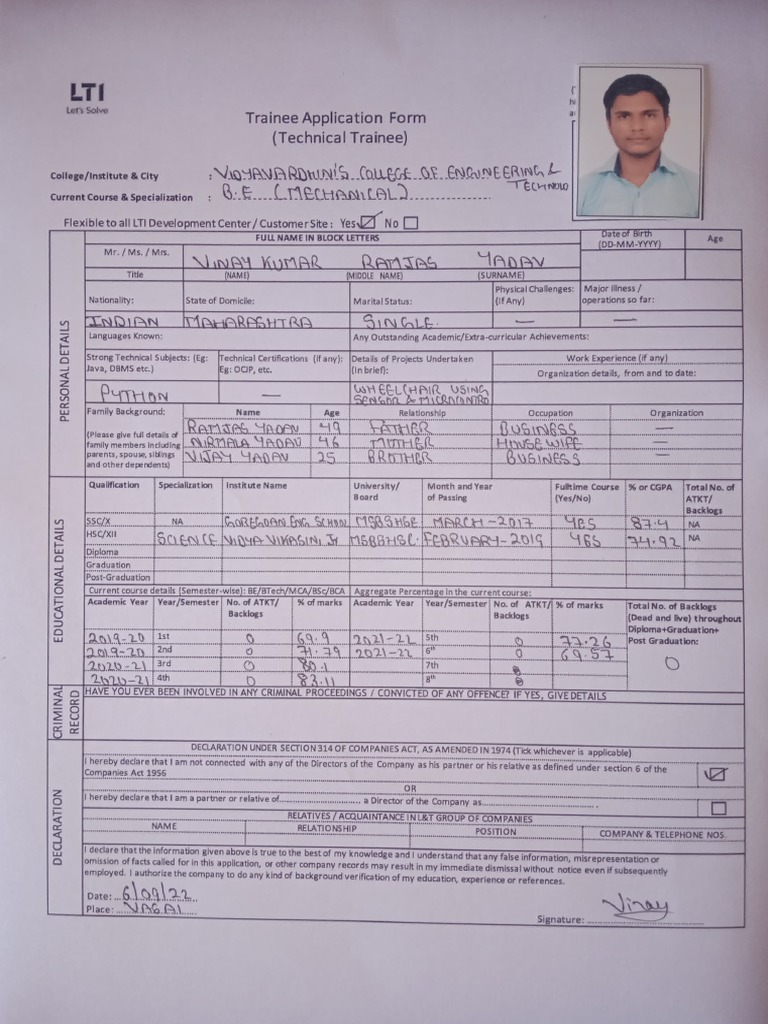 LTI
Let's Solve
Trainee Application Form
(Technical Trainee)
College/Institute & City : VIDYAVARDHINI'S COLLEGE OF ENGINEERING &
TECHNOLO
Current Course & Specialization : B.E (MECHANICAL)
Flexible to all LTI Development Center/ Customer Site: Yes ☑ No ☐
FULL NAME IN BLOCK LETTERS Date of Birth (DD-MM-YYYY) Age
Mr. / Ms. / Mrs. VINAY KUMAR RAMJAS YADAV
Title (NAME) (MIDDLE NAME) (SURNAME)
PERSONAL DETAILS
Nationality: State of Domicile: Marital Status: Physical Challenges: (If Any) Major illness / operations so far:
INDIAN MAHARASHTRA SINGLE. — —
Languages Known: Any Outstanding Academic/Extra-curricular Achievements:
Strong Technical Subjects: (Eg: Java, DBMS etc.) Technical Certifications (if any): Eg: OCJP, etc. Details of Projects Undertaken (In brief): Work Experience (if any)
Organization details, from and to date:
PYTHON — WHEELCHAIR USING
SENSOR & MICROCONTRO
Family Background: Name Age Relationship Occupation Organization
(Please give full details of family members including parents, spouse, siblings and other dependents)
RAMJAS YADAV 49 FATHER BUSINESS —
NIRMALA YADAV 46 MOTHER HOUSE WIFE —
VIJAY YADAV 25 BROTHER BUSINESS —
EDUCATIONAL DETAILS
Qualification Specialization Institute Name University/ Board Month and Year of Passing Fulltime Course (Yes/No) % or CGPA Total No. of ATKT/ Backlogs
SSC/X NA GOREGOAN ENG SCHOOL MSBSHSE MARCH-2017 YES 87.4 NA
HSC/XII SCIENCE VIDYA VIKASINI Jr MSBBHSC. FEBRUARY-2019 YES 74.92 NA
Diploma
Graduation
Post-Graduation
Current course details (Semester-wise): BE/BTech/MCA/BSc/BCA Aggregate Percentage in the current course:
Academic Year Year/Semester No. of ATKT/ Backlogs % of marks Academic Year Year/Semester No. of ATKT/ Backlogs % of marks Total No. of Backlogs (Dead and live) throughout Diploma+Graduation+ Post Graduation:
2019-20 1st 0 69.9 2021-22 5th 0 77.26
2019-20 2nd 0 71.79 2021-22 6th 0 69.57 0
2020-21 3rd 0 80.1 7th
2020-21 4th 0 83.11 8th
CRIMINAL RECORD
HAVE YOU EVER BEEN INVOLVED IN ANY CRIMINAL PROCEEDINGS / CONVICTED OF ANY OFFENCE? IF YES, GIVE DETAILS
DECLARATION
DECLARATION UNDER SECTION 314 OF COMPANIES ACT, AS AMENDED IN 1974 (Tick whichever is applicable)
I hereby declare that I am not connected with any of the Directors of the Company as his partner or his relative as defined under section 6 of the
Companies Act 1956 ☑
OR
I hereby declare that I am a partner or relative of.......................... a Director of the Company as.................................. ☐
RELATIVES / ACQUAINTANCE IN L&T GROUP OF COMPANIES
NAME RELATIONSHIP POSITION COMPANY & TELEPHONE NOS.
I declare that the information given above is true to the best of my knowledge and I understand that any false information, misrepresentation or
omission of facts called for in this application, or other company records may result in my immediate dismissal without notice even if subsequently
employed. I authorize the company to do any kind of background verification of my education, experience or references.
Date: 6/09/22
Place: VASAI
Signature: Vinay